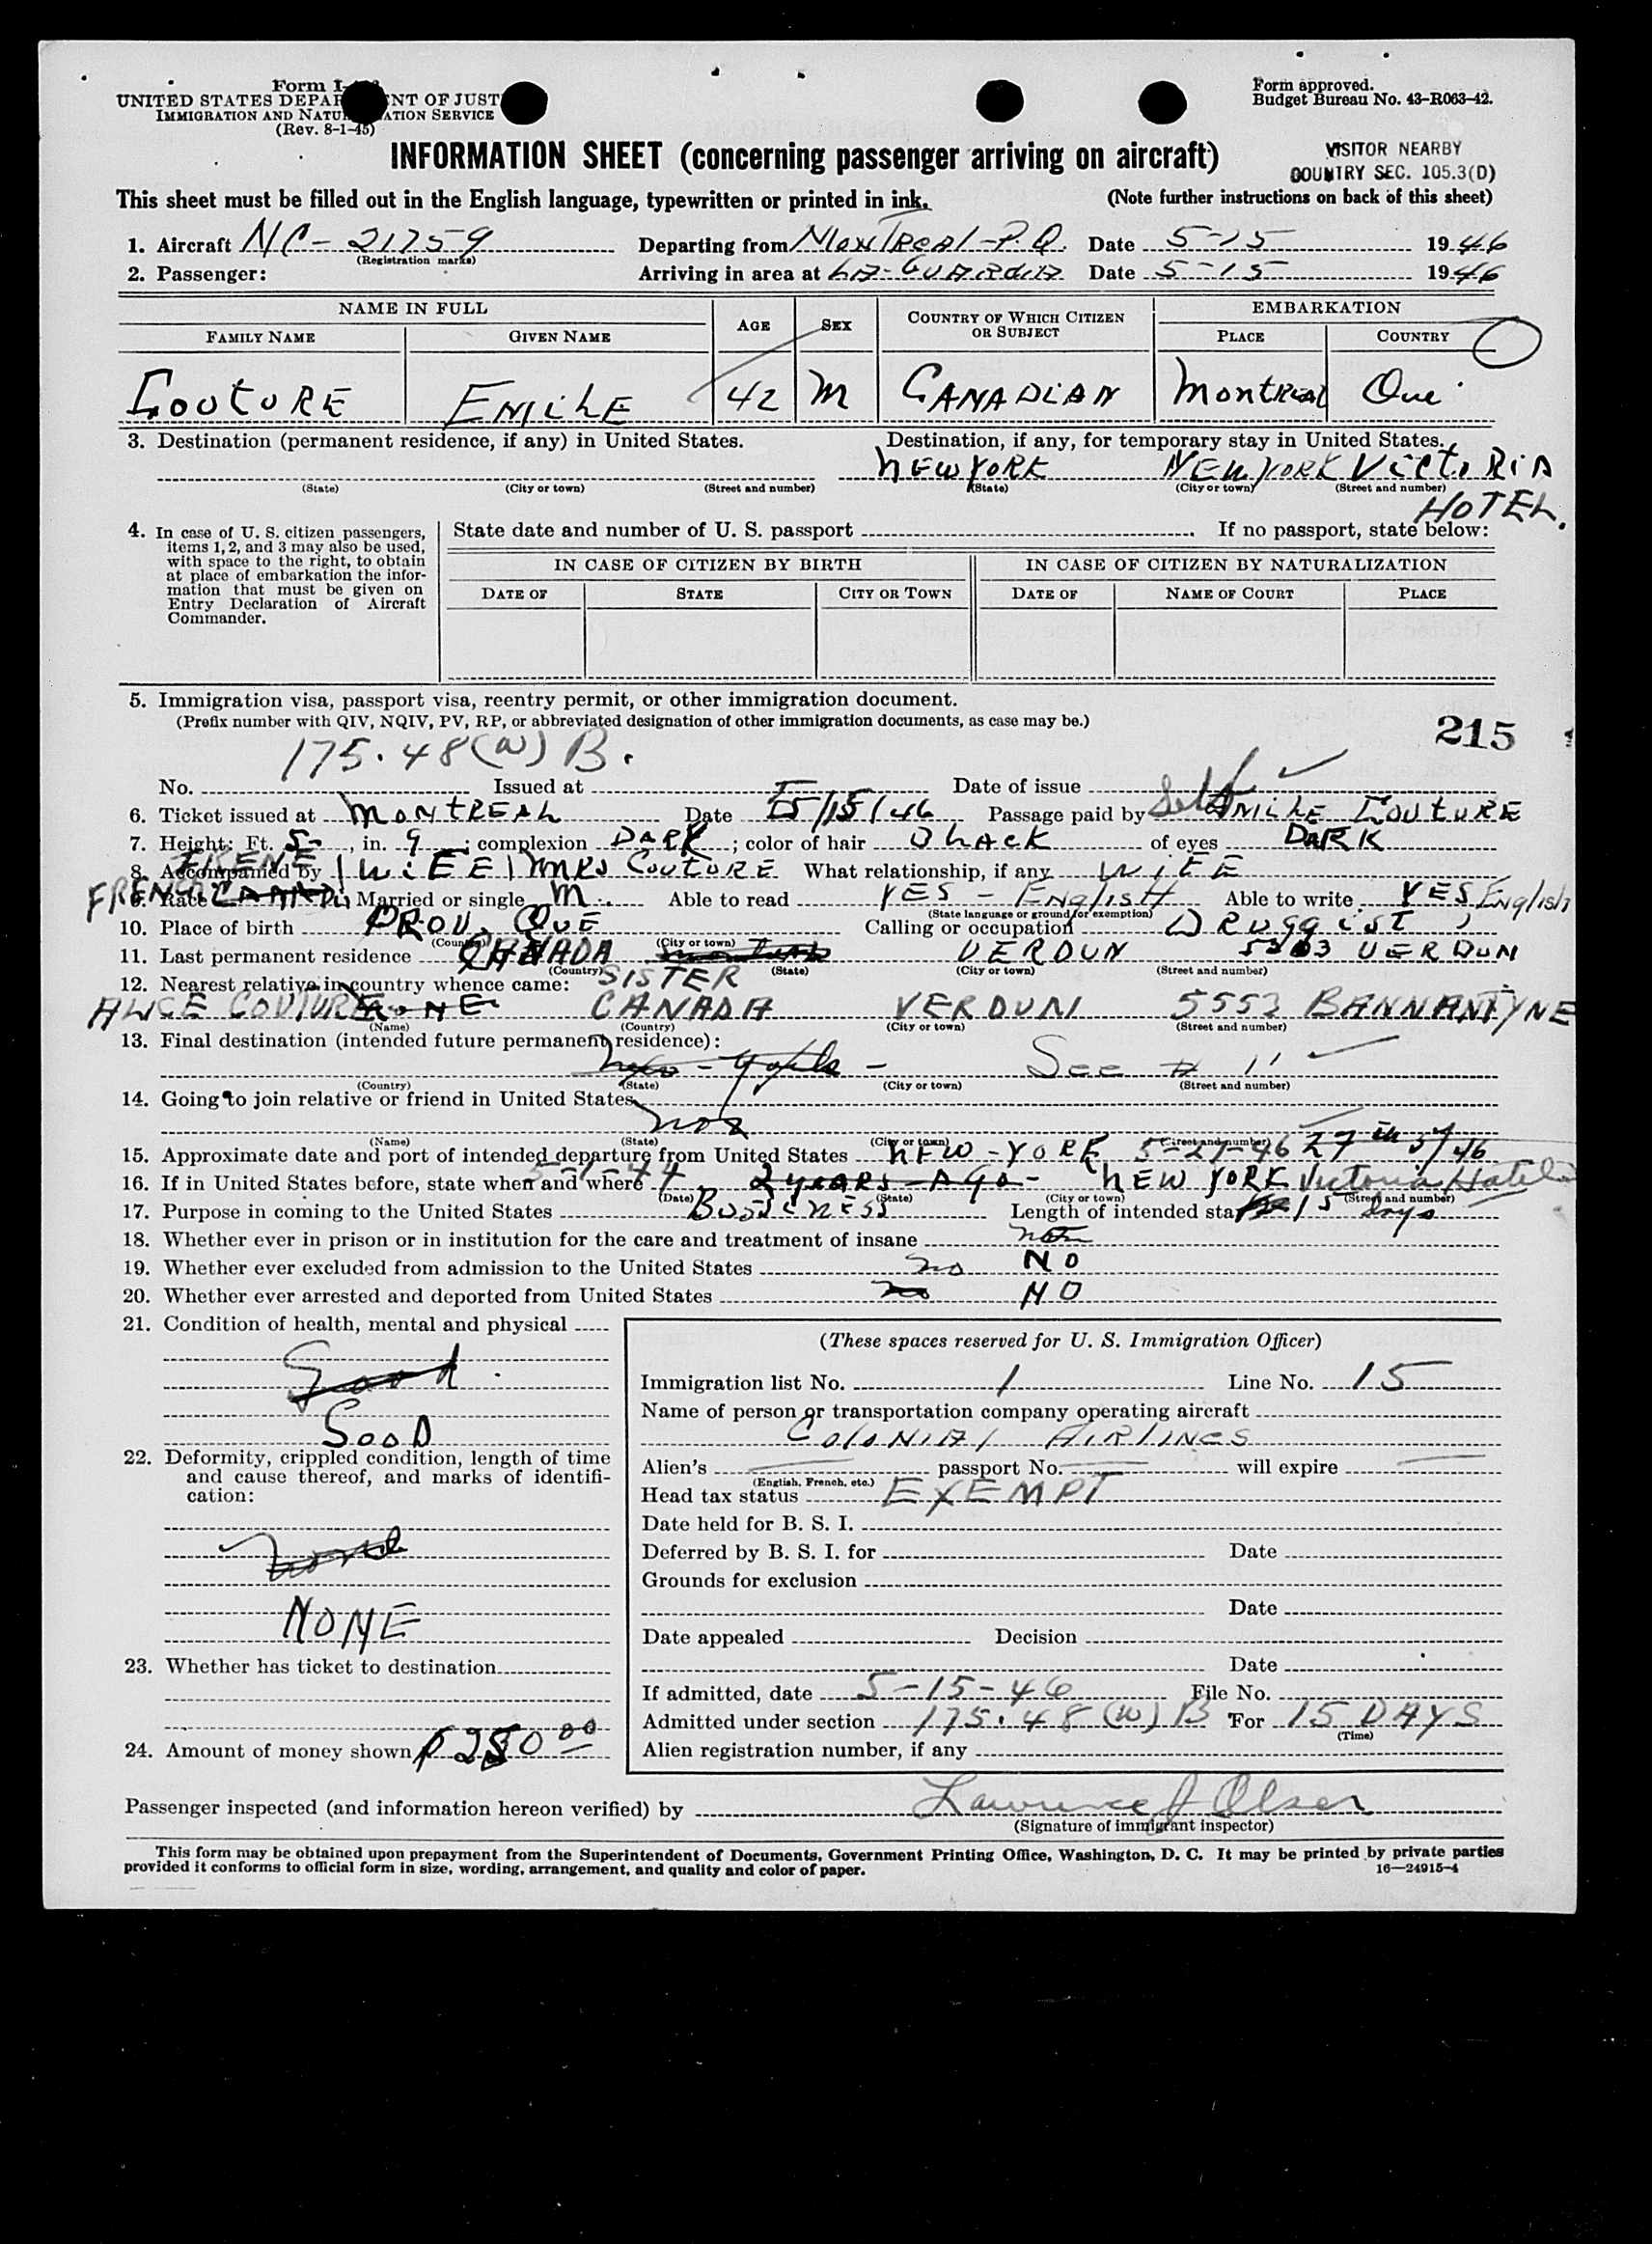 Form I-
UNITED STATES DEPAR NT OF JUST
IMMIGRATION AND NATU ATION SERVICE
(Rev. 8-1-45)
Form approved.
Budget Bureau No. 43-R063-42.
INFORMATION SHEET (concerning passenger arriving on aircraft)
VISITOR NEARBY
COUNTRY SEC. 105.3(D)
This sheet must be filled out in the English language, typewritten or printed in ink. (Note further instructions on back of this sheet)
1. Aircraft NC-21759 Departing from MONTREAL-P.Q. Date 5-15 1946
(Registration marks)
2. Passenger: Arriving in area at LA-GUARDIA Date 5-15 1946
NAME IN FULL AGE SEX COUNTRY OF WHICH CITIZEN OR SUBJECT EMBARKATION
FAMILY NAME GIVEN NAME PLACE COUNTRY
COUTURE EMILE 42 M CANADIAN MONTREAL Que
3. Destination (permanent residence, if any) in United States. Destination, if any, for temporary stay in United States.
NEW YORK NEW YORK VICTORIA
(State) (City or town) (Street and number) (State) (City or town) (Street and number)
HOTEL.
4. In case of U. S. citizen passengers, items 1, 2, and 3 may also be used, with space to the right, to obtain at place of embarkation the information that must be given on Entry Declaration of Aircraft Commander.
State date and number of U. S. passport If no passport, state below:
IN CASE OF CITIZEN BY BIRTH IN CASE OF CITIZEN BY NATURALIZATION
DATE OF STATE CITY OR TOWN DATE OF NAME OF COURT PLACE
5. Immigration visa, passport visa, reentry permit, or other immigration document.
(Prefix number with QIV, NQIV, PV, RP, or abbreviated designation of other immigration documents, as case may be.)
215
175.48(W) B.
No. Issued at Date of issue
6. Ticket issued at MONTREAL Date 5/15/46 Passage paid by Self EMILE COUTURE
7. Height: Ft. 5-, in. 9; complexion DARK; color of hair BLACK of eyes DARK
IRENE
8. Accompanied by 1 WIFE MRS COUTURE What relationship, if any WIFE
FRENCH
9. Race Married or single M. Able to read YES - ENGLISH Able to write YES English
(State language or ground for exemption)
10. Place of birth PROV. QUE Calling or occupation DRUGGIST
(Country) (City or town)
11. Last permanent residence CANADA VERDUN VERDUN
(Country) (State) (City or town) (Street and number)
12. Nearest relative in country whence came: SISTER
ALICE COUTURE NONE CANADA VERDUN 5553 BANNANTYNE
(Name) (Country) (City or town) (Street and number)
13. Final destination (intended future permanent residence):
See # 11
(Country) (State) (City or town) (Street and number)
14. Going to join relative or friend in United States
(Name) (State) (City or town) (Street and number)
15. Approximate date and port of intended departure from United States NEW-YORK 5-27-46 27th 5/46
16. If in United States before, state when and where 5-1-44 2 YEARS AGO - NEW YORK Victoria Hotel
(Date) (State) (City or town) (Street and number)
17. Purpose in coming to the United States BUSINESS Length of intended stay 15 days
18. Whether ever in prison or in institution for the care and treatment of insane
19. Whether ever excluded from admission to the United States no NO
20. Whether ever arrested and deported from United States no NO
21. Condition of health, mental and physical
Good.
GOOD
22. Deformity, crippled condition, length of time and cause thereof, and marks of identification:
none
NONE
23. Whether has ticket to destination
24. Amount of money shown $250.00
(These spaces reserved for U. S. Immigration Officer)
Immigration list No. 1 Line No. 15
Name of person or transportation company operating aircraft
COLONIAL AIRLINES
Alien's passport No. will expire
(English, French, etc.)
Head tax status EXEMPT
Date held for B. S. I.
Deferred by B. S. I. for Date
Grounds for exclusion
Date
Date appealed Decision
Date
If admitted, date 5-15-46 File No.
Admitted under section 175.48 (W) B For 15 DAYS
(Time)
Alien registration number, if any
Passenger inspected (and information hereon verified) by Lawrence J Olsen
(Signature of immigrant inspector)
This form may be obtained upon prepayment from the Superintendent of Documents, Government Printing Office, Washington, D. C. It may be printed by private parties
provided it conforms to official form in size, wording, arrangement, and quality and color of paper. 16—24915-4